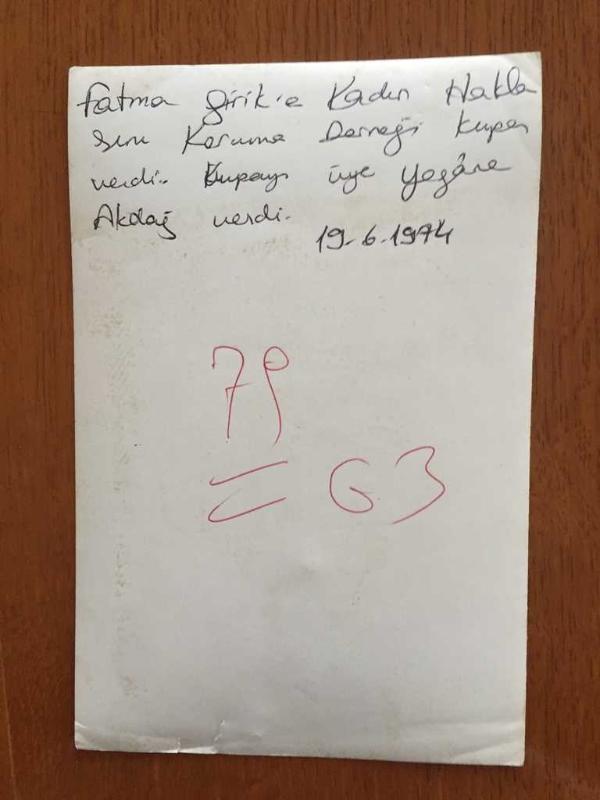 Fatma Girik'e Kadın Hakla
rını Koruma Derneği kupası
verdi. Kupayı üye Yegâne
Akdağ verdi.
19-6-1974
79
= G3